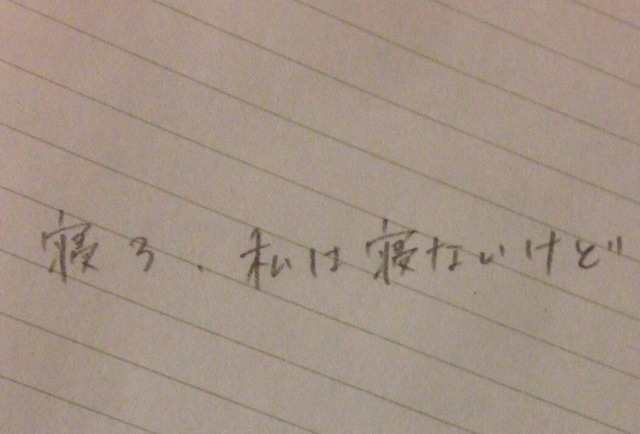 寝ろ、私は寝ないけど